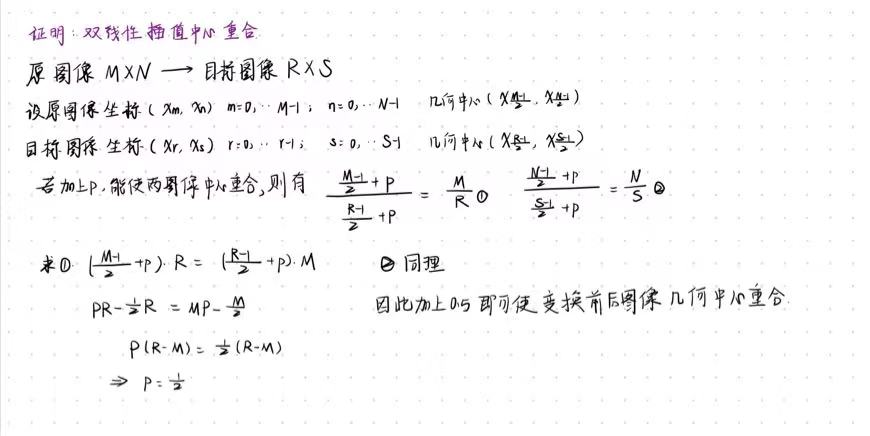 证明：双线性插值中心重合
原图像 M×N → 目标图像 R×S
设原图像坐标 (Xm, Xn) m=0,··M-1; n=0,··N-1 几何中心 (X(M-1)/2, X(N-1)/2)
目标图像坐标 (Xr, Xs) r=0,·· r-1; s=0,··S-1 几何中心 (X(R-1)/2, X(S-1)/2)
若加上P,能使两图像中心重合,则有 ((M-1)/2 + P)/((R-1)/2 + P) = M/R ① ((N-1)/2 + P)/((S-1)/2 + P) = N/S ②
求① ((M-1)/2 + P)·R = ((R-1)/2 + P)·M ② 同理
PR - 1/2 R = MP - M/2 因此加上0.5即可使变换前后图像几何中心重合.
P(R-M) = 1/2 (R-M)
⇒ P = 1/2